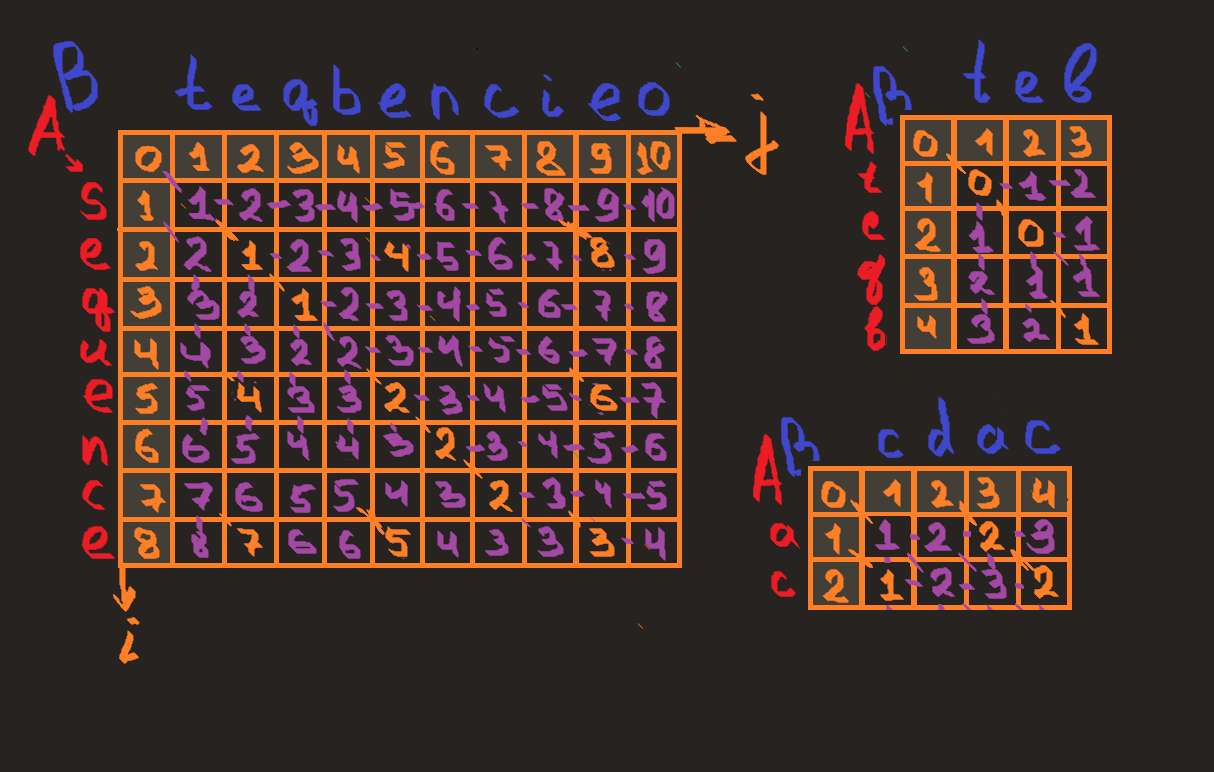 B t e q b e n c i e o
A 0 1 2 3 4 5 6 7 8 9 10 j
s 1 1 2 3 4 5 6 7 8 9 10
e 2 2 1 2 3 4 5 6 7 8 9
q 3 3 2 1 2 3 4 5 6 7 8
u 4 4 3 2 2 3 4 5 6 7 8
e 5 5 4 3 3 2 3 4 5 6 7
n 6 6 5 4 4 3 2 3 4 5 6
c 7 7 6 5 5 4 3 2 3 4 5
e 8 8 7 6 6 5 4 3 3 3 4
i
B t e b
A 0 1 2 3
t 1 0 1 2
e 2 1 0 1
q 3 2 1 1
b 4 3 2 1
B c d a c
A 0 1 2 3 4
a 1 1 2 2 3
c 2 1 2 3 2